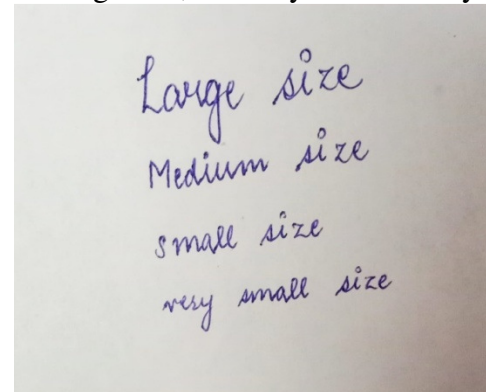 Large size
Medium size
small size
very small size